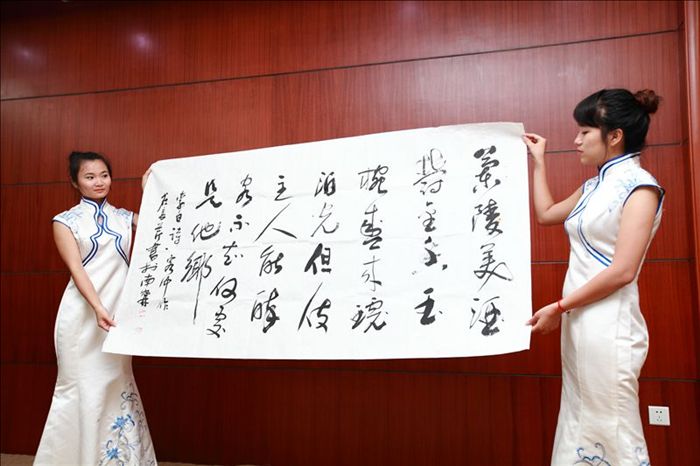 蘭陵美酒
鬱金香玉
椀盛来琥
珀光但使
主人能醉
客不知何處
是他鄉
李白诗客中作
書於南寧